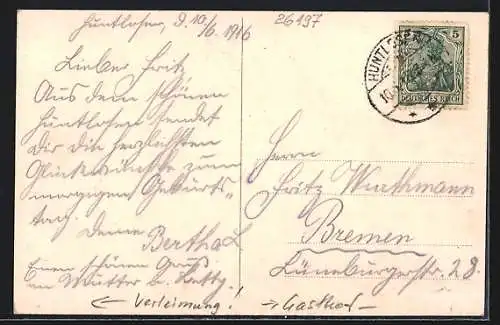 Huntlosen, d. 10/6. 1916
26197
Lieber Fritz
Aus dem schönen
Huntlosen sendet
Dir die herzlichsten
Glückwünsche zum
morgigen Geburts-
tag.
Deine Bertha L
Einen schönen Gruß
an Mutter
← Verleimung!
HUNTLOSEN
10
5
DEUTSCHES REICH
Herrn
Fritz Wurthmann
Bremen
Lüneburgerstr. 28.
→ Gasthof –